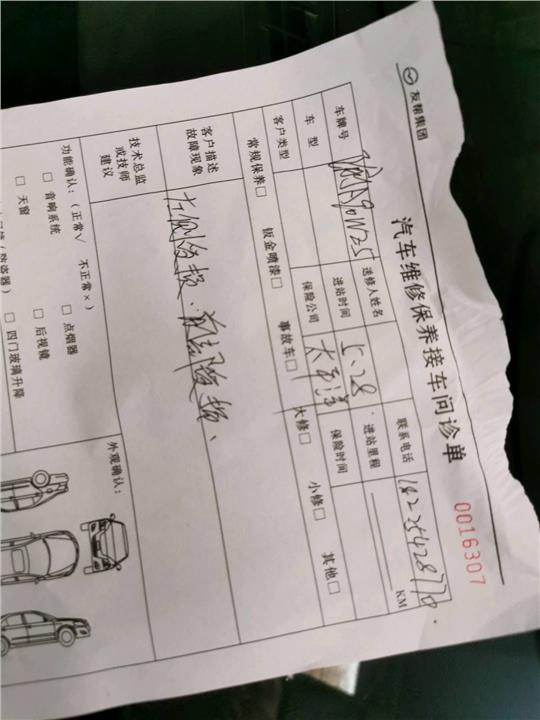 友帮集团
汽车维修保养接车问诊单
0016307
车牌号 送修人姓名 联系电话 18225428770
车 型 进站时间 5.28. 进站里程 KM
客户类型 保险公司 太平洋 保险时间
常规保养□ 钣金喷漆□ 事故车□ 大修□ 小修□ 其他□
客户描述
故障现象
左侧受损、前部受损、
技术总监
或技师
建议
功能确认：（正常√ 不正常×） 外观确认：
□ 音响系统 □ 点烟器
□ 天窗 □ 后视镜
□ 四门玻璃升降